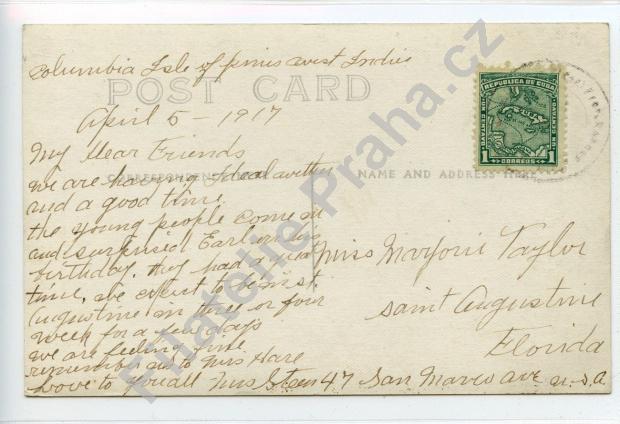 Columbia Isle of pines West Indies
POST CARD
April 5 - 1917
My Dear Friends
CORRESPONDENCE
NAME AND ADDRESS HERE
we are having Ideal wether
and a good time
the young people come in
and surprised Earl on his
birthday. they had a
time, we expect to be in st.
Augustine in three or four
week for a few days
we are feeling fine
remember us to Mrs Hare
Love to you all Mrs
REPUBLICA DE CUBA
UN CENTAVO
UN CENTAVO
1 CORREOS 1
Miss Marjorie Taylor
Saint Augustine
Florida
47 San Marco ave U.S.A
Filatelie-Praha.cz